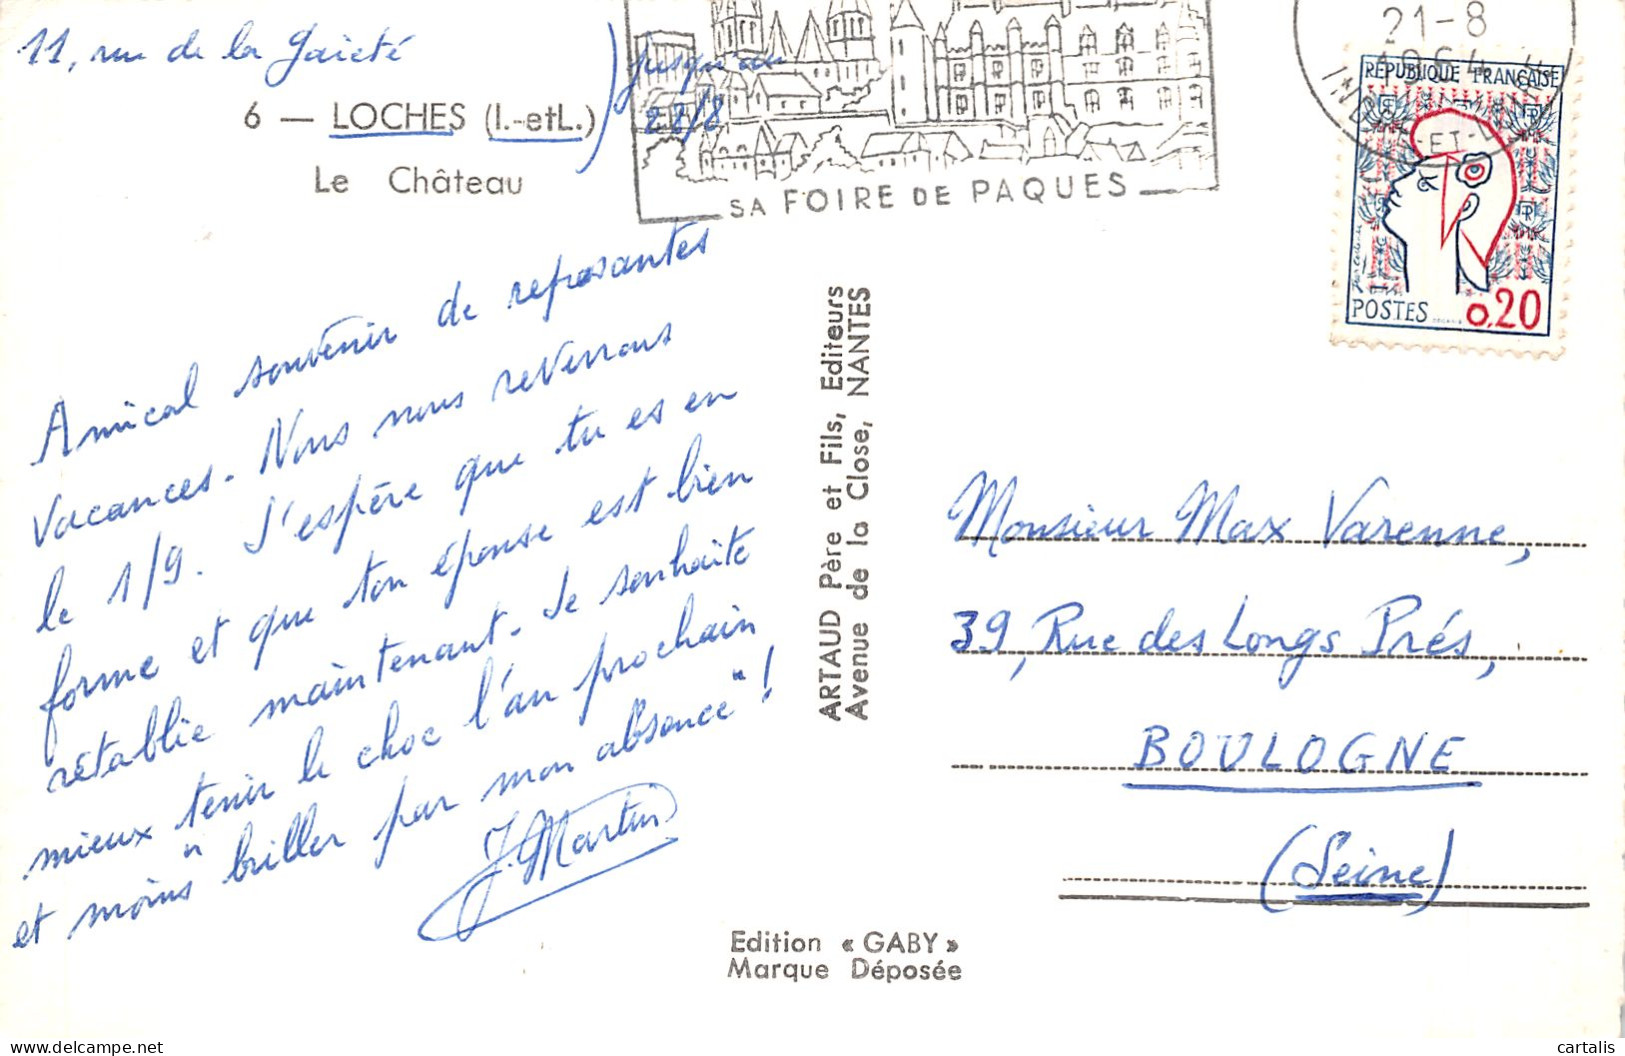 11, rue de la Gaieté
6 — LOCHES (I.-et-L.)
Le Château
jusqu'au
28/8
SA FOIRE DE PAQUES
21-8
1964
INDRE-ET-LOIRE
RÉPUBLIQUE FRANÇAISE
POSTES 0,20
Amical souvenir de reposantes
vacances. Nous nous reverrons
le 1/9. J'espère que tu es en
forme et que ton épouse est bien
rétablie maintenant. Je souhaite
mieux tenir le choc l'an prochain
et moins "briller par mon absence"!
J. Martin
ARTAUD Père et Fils, Editeurs
Avenue de la Close, NANTES
Monsieur Max Varenne,
39, Rue des Longs Prés,
BOULOGNE
(Seine)
Edition « GABY »
Marque Déposée
cartalis